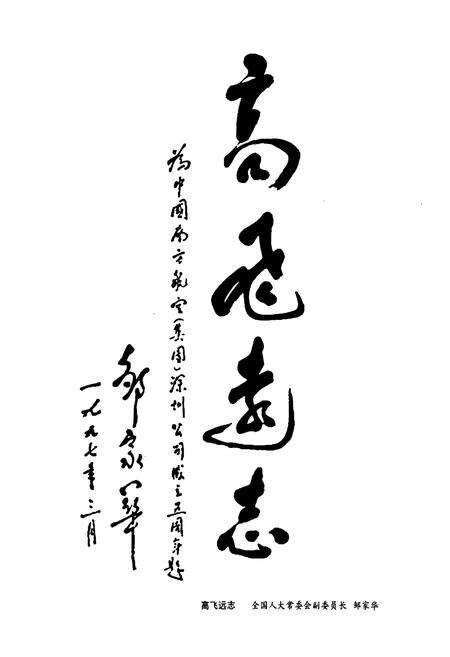 高飛遠志
為中國南方航空(集团)深圳公司成立五周年題
邹家华
一九九七年三月
高飞远志 全国人大常委会副委员长 邹家华